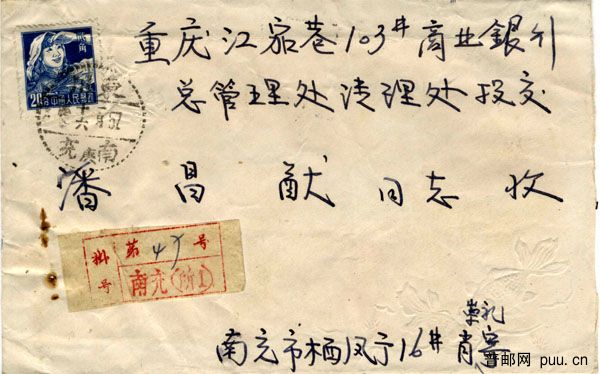 重庆江家巷103#商业銀行
总管理处清理处投交
潘昌猷同志收
南充市栖凤亍16#肖寄
崇礼
挂号
第47号
南充(所1)
贰角
20分中国人民邮政
南充
普邮网 puu.cn